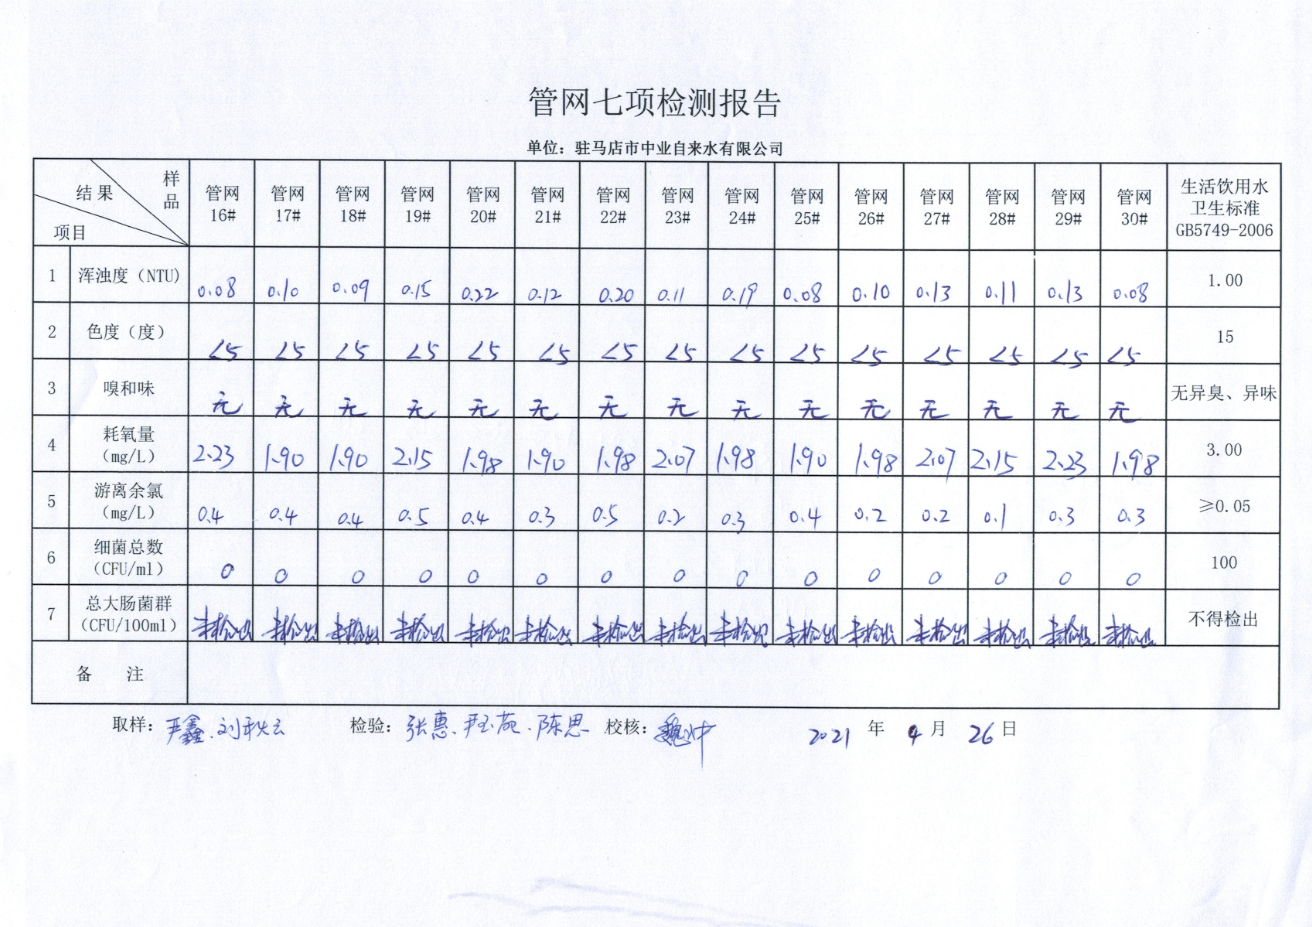 管网七项检测报告
单位：驻马店市中业自来水有限公司
样品 结果 项目 管网16# 管网17# 管网18# 管网19# 管网20# 管网21# 管网22# 管网23# 管网24# 管网25# 管网26# 管网27# 管网28# 管网29# 管网30# 生活饮用水卫生标准GB5749-2006
1 浑浊度（NTU） 0.08 0.10 0.09 0.15 0.22 0.12 0.20 0.11 0.19 0.08 0.10 0.13 0.11 0.13 0.08 1.00
2 色度（度） <5 <5 <5 <5 <5 <5 <5 <5 <5 <5 <5 <5 <5 <5 <5 15
3 嗅和味 无 无 无 无 无 无 无 无 无 无 无 无 无 无 无 无异臭、异味
4 耗氧量（mg/L） 2.23 1.90 1.90 2.15 1.98 1.90 1.98 2.07 1.98 1.90 1.98 2.07 2.15 2.23 1.98 3.00
5 游离余氯（mg/L） 0.4 0.4 0.4 0.5 0.4 0.3 0.5 0.2 0.3 0.4 0.2 0.2 0.1 0.3 0.3 ≥0.05
6 细菌总数（CFU/ml） 0 0 0 0 0 0 0 0 0 0 0 0 0 0 0 100
7 总大肠菌群（CFU/100ml） 未检出 未检出 未检出 未检出 未检出 未检出 未检出 未检出 未检出 未检出 未检出 未检出 未检出 未检出 未检出 不得检出
备 注
取样：严鑫、刘秋云 检验：张惠、严玉苑、陈思 校核：魏冲 2021 年 4 月 26 日